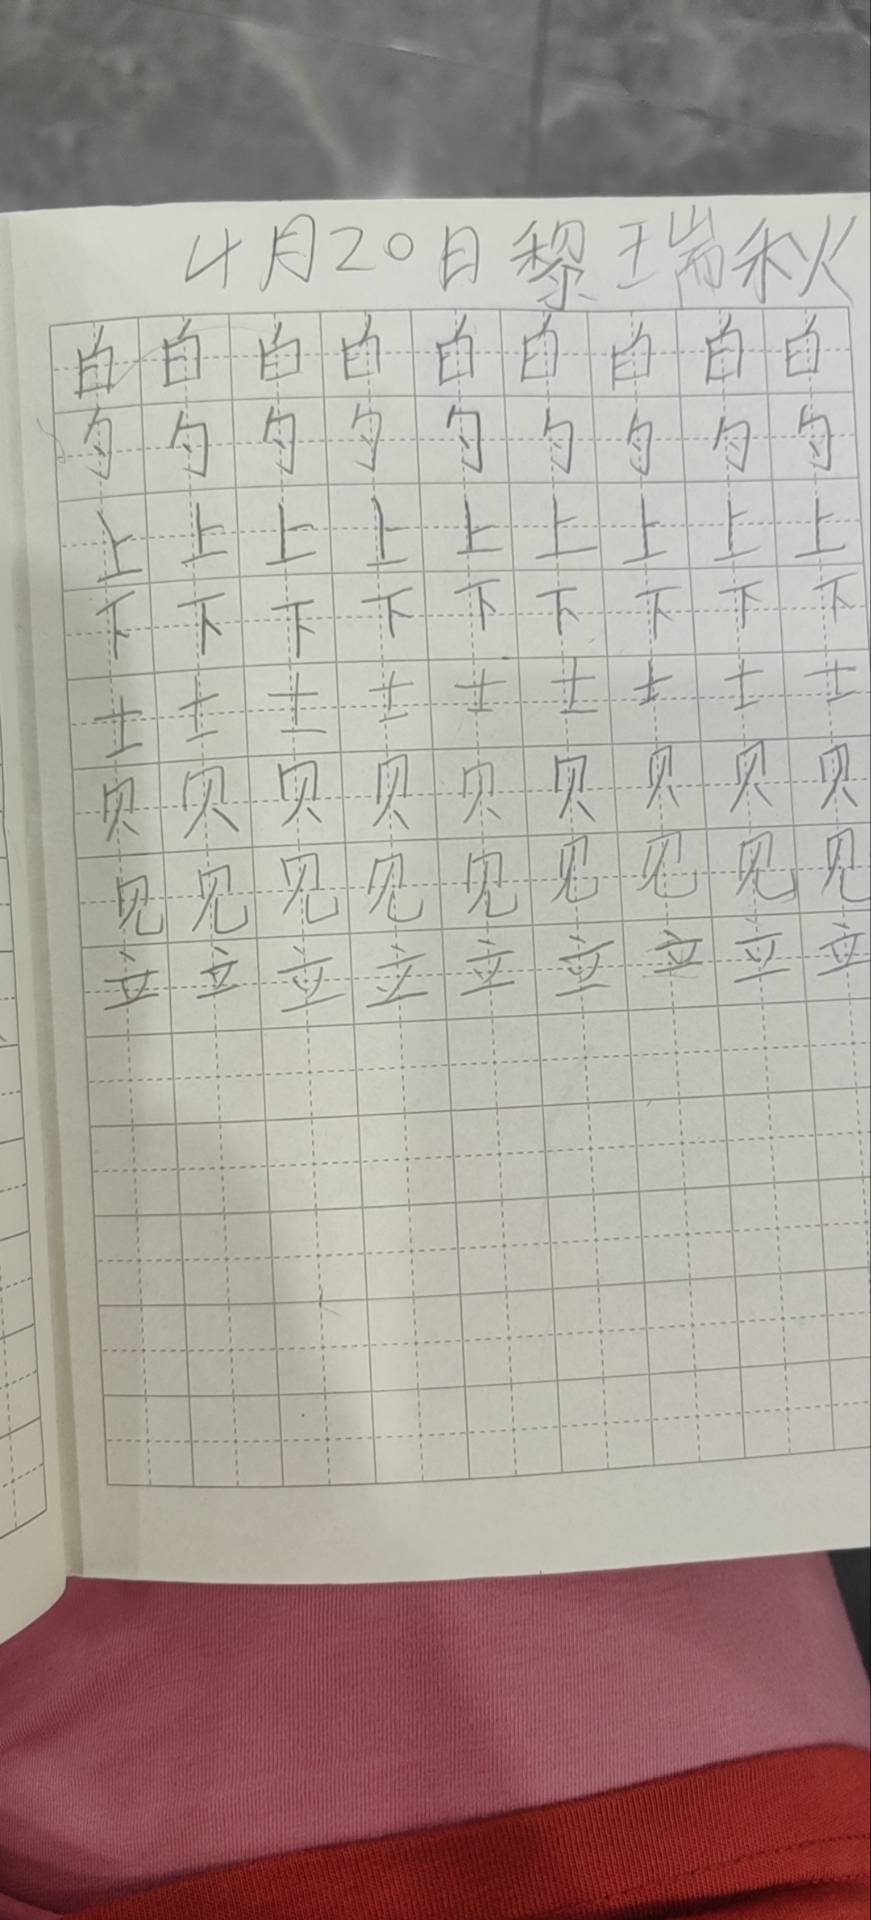 4月20日黎瑞秋
白白白白白白白白白
勺勺勺勺勺勺勺勺勺
上上上上上上上上上
下下下下下下下下下
士士士士士士士士士
贝贝贝贝贝贝贝贝贝
见见见见见见见见见
立立立立立立立立立